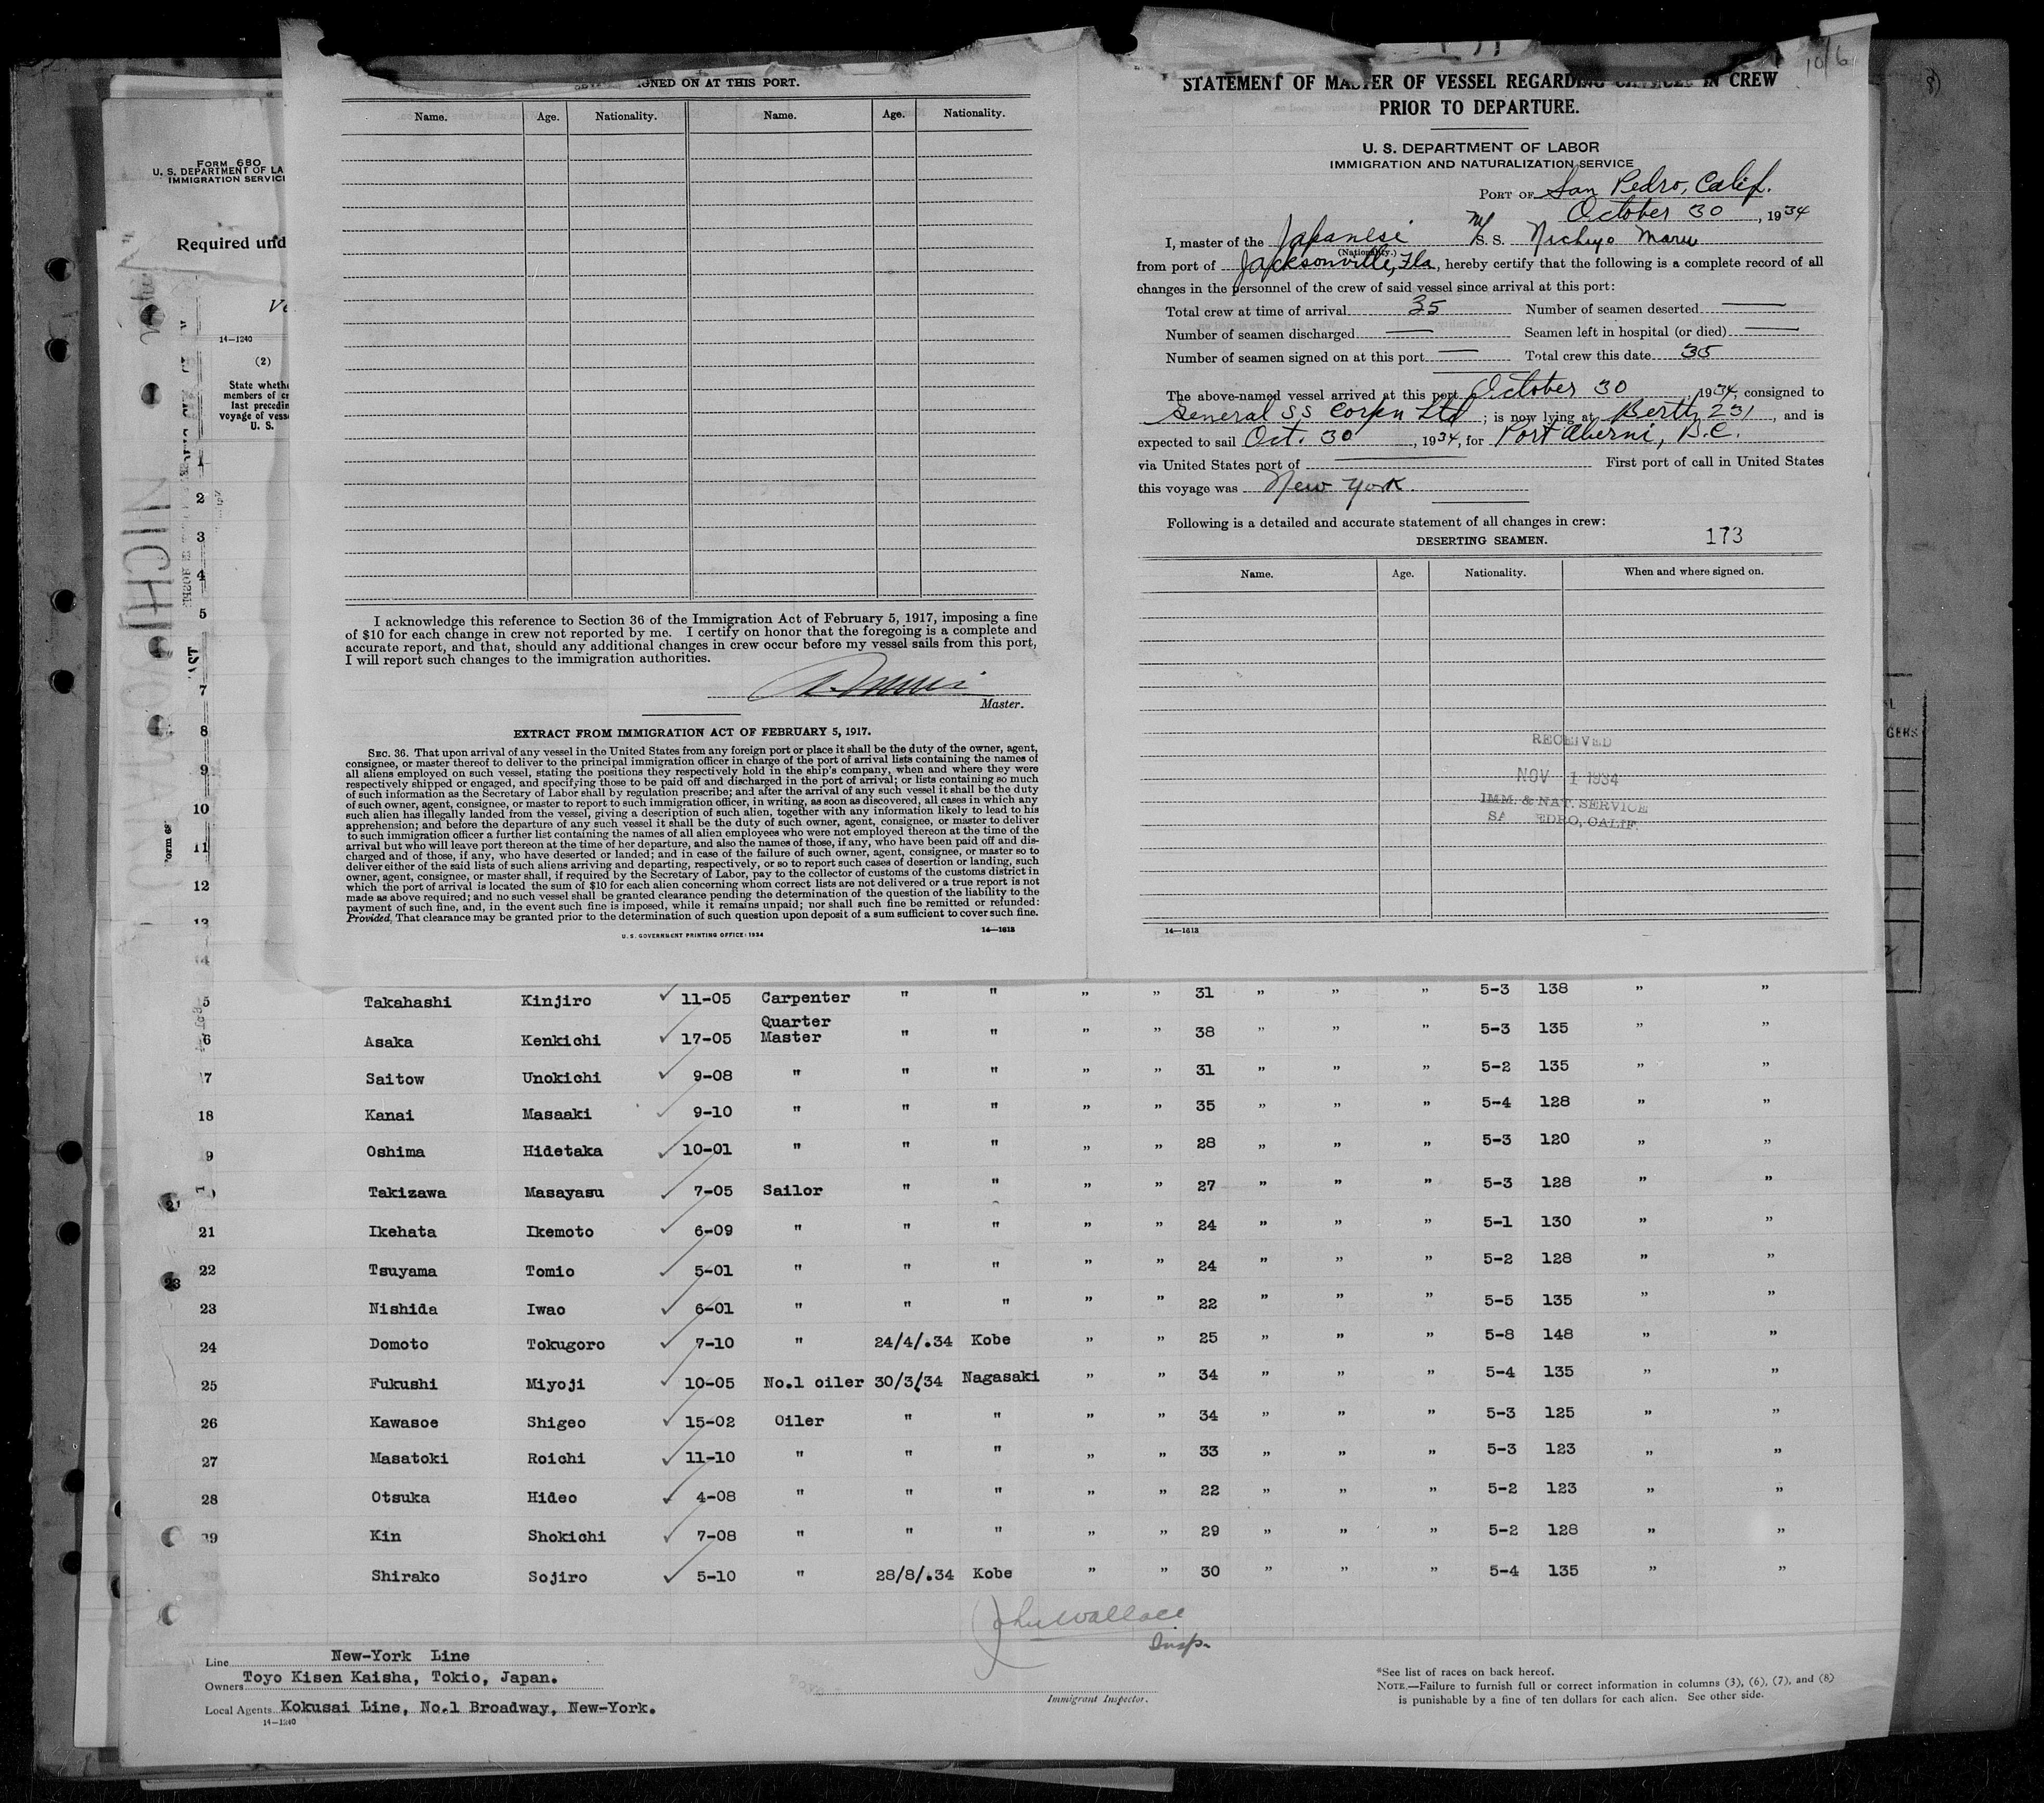 10/6
SIGNED ON AT THIS PORT.
Name. Age. Nationality. Name. Age. Nationality.
I acknowledge this reference to Section 36 of the Immigration Act of February 5, 1917, imposing a fine
of $10 for each change in crew not reported by me. I certify on honor that the foregoing is a complete and
accurate report, and that, should any additional changes in crew occur before my vessel sails from this port,
I will report such changes to the immigration authorities.
Master.
EXTRACT FROM IMMIGRATION ACT OF FEBRUARY 5, 1917.
SEC. 36. That upon arrival of any vessel in the United States from any foreign port or place it shall be the duty of the owner, agent,
consignee, or master thereof to deliver to the principal immigration officer in charge of the port of arrival lists containing the names of
all aliens employed on such vessel, stating the positions they respectively hold in the ship's company, when and where they were
respectively shipped or engaged, and specifying those to be paid off and discharged in the port of arrival; or lists containing so much
of such information as the Secretary of Labor shall by regulation prescribe; and after the arrival of any such vessel it shall be the duty
of such owner, agent, consignee, or master to report to such immigration officer, in writing, as soon as discovered, all cases in which any
such alien has illegally landed from the vessel, giving a description of such alien, together with any information likely to lead to his
apprehension; and before the departure of any such vessel it shall be the duty of such owner, agent, consignee, or master to deliver
to such immigration officer a further list containing the names of all alien employees who were not employed thereon at the time of the
arrival but who will leave port thereon at the time of her departure, and also the names of those, if any, who have been paid off and dis-
charged and of those, if any, who have deserted or landed; and in case of the failure of such owner, agent, consignee, or master so to
deliver either of the said lists of such aliens arriving and departing, respectively, or so to report such cases of desertion or landing, such
owner, agent, consignee, or master shall, if required by the Secretary of Labor, pay to the collector of customs of the customs district in
which the port of arrival is located the sum of $10 for each alien concerning whom correct lists are not delivered or a true report is not
made as above required; and no such vessel shall be granted clearance pending the determination of the question of the liability to the
payment of such fine, and, in the event such fine is imposed, while it remains unpaid; nor shall such fine be remitted or refunded:
Provided, That clearance may be granted prior to the determination of such question upon deposit of a sum sufficient to cover such fine.
U. S. GOVERNMENT PRINTING OFFICE: 1934 14—1613
STATEMENT OF MASTER OF VESSEL REGARDING CHANGES IN CREW
PRIOR TO DEPARTURE.
U. S. DEPARTMENT OF LABOR
IMMIGRATION AND NATURALIZATION SERVICE
PORT OF San Pedro, Calif.
October 30, 1934
I, master of the Japanese M/S. S. Nichiyo Maru
(Nationality.)
from port of Jacksonville, Fla, hereby certify that the following is a complete record of all
changes in the personnel of the crew of said vessel since arrival at this port:
Total crew at time of arrival 35 Number of seamen deserted —
Number of seamen discharged — Seamen left in hospital (or died) —
Number of seamen signed on at this port — Total crew this date 35
The above-named vessel arrived at this port October 30, 1934, consigned to
General SS Corpn Ltd; is now lying at Berth 231, and is
expected to sail Oct. 30, 1934, for Port Alberni, B.C.
via United States port of — First port of call in United States
this voyage was New York.
Following is a detailed and accurate statement of all changes in crew:
DESERTING SEAMEN. 173
Name. Age. Nationality. When and where signed on.
RECEIVED
NOV 1 1934
IMM. & NAT. SERVICE
SA EDRO, CALIF.
14—1613
FORM 680
U. S. DEPARTMENT OF LA
IMMIGRATION SERVIC
Required und
Ve
14—1240
(2)
State wheth
members of c
last precedin
voyage of vess
U. S.
1
2
3
4
5
7
8
9
10
11
12
13
NICHI
5 Takahashi Kinjiro ✓ 11-05 Carpenter " " " " 31 " " " 5-3 138 " "
6 Asaka Kenkichi ✓ 17-05 Quarter Master " " " " 38 " " " 5-3 135 " "
17 Saitow Unokichi ✓ 9-08 " " " " " 31 " " " 5-2 135 " "
18 Kanai Masaaki ✓ 9-10 " " " " " 35 " " " 5-4 128 " "
9 Oshima Hidetaka ✓ 10-01 " " " " " 28 " " " 5-3 120 " "
Takizawa Masayasu ✓ 7-05 Sailor " " " " 27 " " " 5-3 128 " "
21 Ikehata Ikemoto ✓ 6-09 " " " " " 24 " " " 5-1 130 " "
22 Tsuyama Tomio ✓ 5-01 " " " " " 24 " " " 5-2 128 " "
23 Nishida Iwao ✓ 6-01 " " " " " 22 " " " 5-5 135 " "
24 Domoto Tokugoro ✓ 7-10 " 24/4/.34 Kobe " " 25 " " " 5-8 148 " "
25 Fukushi Miyoji ✓ 10-05 No.1 oiler 30/3/34 Nagasaki " " 34 " " " 5-4 135 " "
26 Kawasoe Shigeo ✓ 15-02 Oiler " " " " 34 " " " 5-3 125 " "
27 Masatoki Roichi ✓ 11-10 " " " " " 33 " " " 5-3 123 " "
28 Otsuka Hideo ✓ 4-08 " " " " " 22 " " " 5-2 123 " "
29 Kin Shokichi ✓ 7-08 " " " " " 29 " " " 5-2 128 " "
Shirako Sojiro ✓ 5-10 " 28/8/.34 Kobe " " 30 " " " 5-4 135 " "
John Wallace
Insp.
Line New-York Line
Owners Toyo Kisen Kaisha, Tokio, Japan.
Local Agents Kokusai Line, No.1 Broadway, New-York.
14—1240
Immigrant Inspector.
*See list of races on back hereof.
NOTE.—Failure to furnish full or correct information in columns (3), (6), (7), and (8)
is punishable by a fine of ten dollars for each alien. See other side.